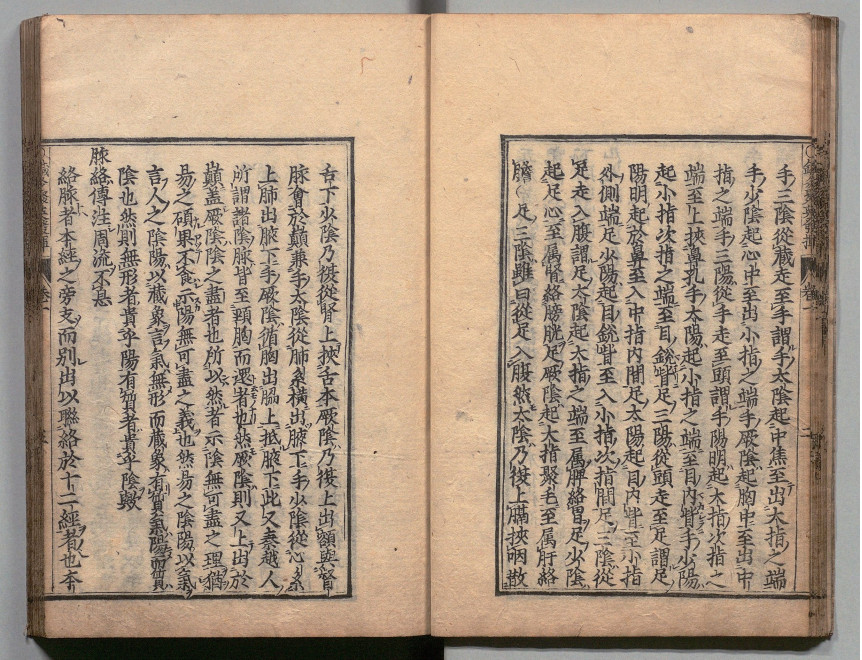 手三陰從藏走至手謂手太陰起中焦至出大指之端
手少陰起心中至出小指之端手厥陰起胸中至出中
指之端手三陽從手走至頭謂手陽明起大指次指之
端至上挾鼻孔手太陽起小指之端至目內眥手少陽
起小指次指之端至目銳眥足三陽從頭走至足謂足
陽明起於鼻至入中指內間足太陽起目內眥至小指
外側端足少陽起目銳眥至入小指次指間足三陰從
足走入腹謂足太陰起大指之端至属脾絡胃足少陰
起足心至属腎絡膀胱足厥陰起大指聚毛至属肝絡
膽足三陰雖曰從足入腹然太陰乃復上膈挾咽散
舌下少陰乃復從腎上挾舌本厥陰乃復上出額與督
脉會於巔兼手太陰從肺系橫出腋下手少陰從心系
上肺出腋下手厥陰循胸出脇上抵腋下此又秦越人
所謂諸陰脉皆至頸胸而還者也然厥陰則又上出於
巔盖厥陰陰之盡者也所以然者示陰無可盡之理猶
易之碩果不食示陽無可盡之義也然易之陰陽以氣
言人之陰陽以藏象言氣無形而藏象有質氣陽而質
陰也然則無形者貴乎陽有質者貴乎陰歟
脉絡傳注周流不息
絡脉者本經之旁支而別出以聯絡於十二經者也本
卷一